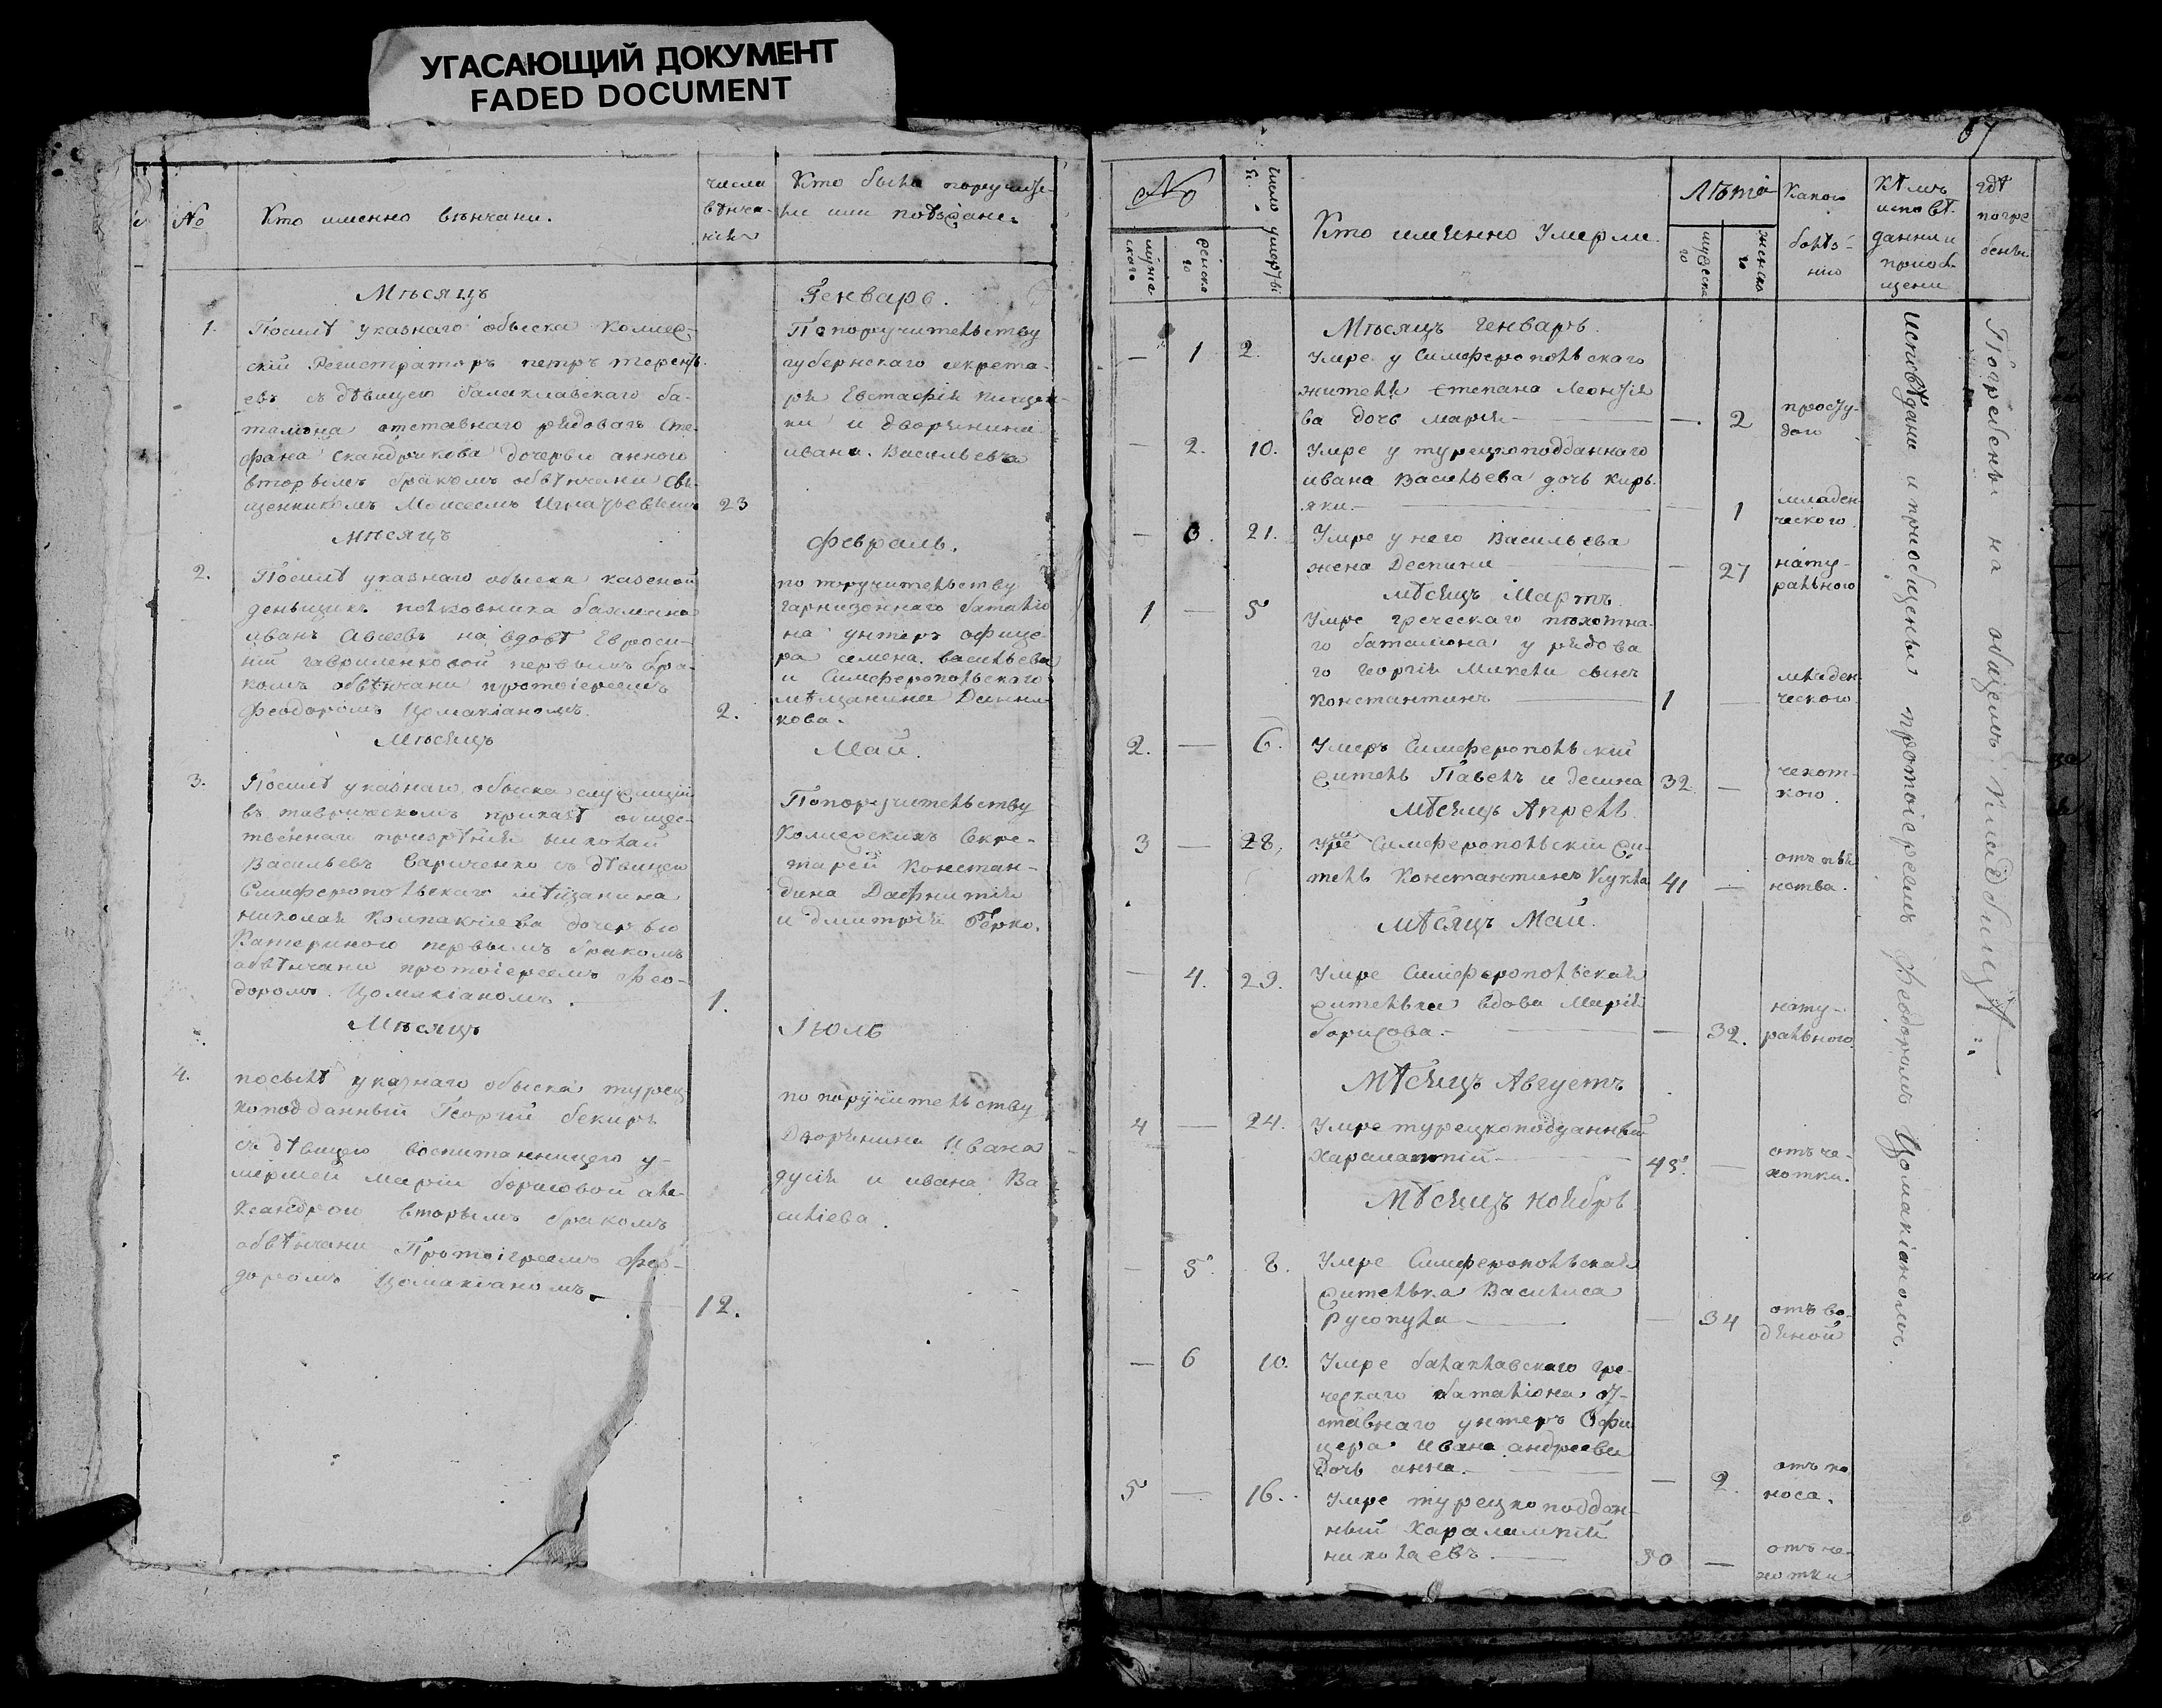 УГАСАЮЩИЙ ДОКУМЕНТ
FADED DOCUMENT
№
Кто именно вѣнчани.
числа
вѣнча-
нія
Кто были поручите-
ли или поѣзжане.
Мѣсяцъ
Генварь.
1.
Послѣ указнаго обыска коллеж-
скій Регистраторъ петръ терентъ-
евъ съ дѣвицею балаклавскаго ба-
талиона отставнаго рядоваго Сте-
фана скандракова дочерью анною
вторымъ бракомъ обвѣнчани свя-
щенникомъ Моисеемъ Игнатьевымъ
23
По поручительству
губернскаго секрета-
ря Евстафія
и дворянина
ивана Васильева
Мѣсяцъ
Февраль.
2.
Послѣ указнаго обыска казеной
деньщикъ полковника
иванъ Авѣевъ на вдовѣ Евроси-
ніи гавриленковой первымъ бра-
комъ обвѣнчани протоіереемъ
Феодоромъ Цомакіаномъ.
2.
по поручительству
гарнизоннаго баталіо
на унтеръ офице-
ра семена васильева
и Симферопольскаго
мѣщанина Данни-
кова.
Мѣсяцъ
Май.
3.
Послѣ указнаго обыска служащій
въ таврическомъ приказѣ общес-
твеннаго призрѣнія николай
Васильевъ Сариченко съ дѣвицею
Симферопольскаго мѣщанина
николая Колпакчиева дочерью
Катериною первымъ бракомъ
обвѣнчани протоіереемъ Фео-
доромъ Цомакіаномъ.
1.
По поручительству
Колежскихъ Секре-
тарей Констан-
дина Дафнитія
и дмитрія Герко.
Мѣсяцъ
Іюль
4.
посылѣ указнаго обыска турец
коподданный Георгий бекиръ
съ дѣвицею воспитанницею у-
мершей маріи борисовой але-
ксандрою вторымъ бракомъ
обвѣнчани Протоіереемъ Фео-
доромъ Цомакіаномъ.
12.
по поручительству
Дворянина Ивана
дусія и ивана Ва
силіева.
67
№
мужескаго
женскаго
число умертвія
Кто имянно Умерли.
Лѣта
мужеска го
женска го
Какою
болѣз-
нію
Кѣмъ
исповѣ-
данни и
приоб-
щени
гдѣ
погре
бены
Мѣсяцъ Генварь.
— 1 2.
Умре у Симферопольскаго
жителя степана Леонтія
ва дочь марія — —. 2
простудою
— 2. 10.
Умре у турецкоподданнаго
ивана Васильева дочь киръ-
яки. — — 1
младен-
ческого
— 3. 21.
Умре у него Васильева
жена Деспина — — 27
нату-
рального
мѣсяцъ Мартъ.
1 — 5
Умре греческаго пѣхотна-
го баталиона у рядова
го георгія Микели сынъ
константинъ — 1 —
младен-
ческого
2. — 6.
Умеръ Симферопольскій
житель Павелъ и десина 32 —
чехот-
кою.
Мѣсяцъ Апрель.
3 — 28.
Умре Симферопольскій жи-
тель Константинъ Кукла 41 —
отъ пья
нства.
Мѣсяцъ Май.
— 4. 29.
Умре Симферопольская
жителька вдова Марія
борисова. — — 32.
нату-
рального
Мѣсяцъ Августъ
4 — 24.
Умре турецкоподданный
Харалампій — 45. —
отъ че-
хотки.
Мѣсяцъ ноябрь
— 5. 8.
Умре Симферопольская
жителька Василиса
Русопула — — 34
отъ во-
дяной
— 6 10.
Умре балаклавскаго гре-
ческаго баталіона от-
ставнаго унтеръ Офи
цера ивана андреева
дочь анна. — — 2.
отъ по
носа.
5 — 16.
Умре турецкоподдан-
ный Харалампій
николаевъ. — 30 —
отъ че-
хотки
исповѣданы и приобщены протоіереемъ Феодоромъ Цомакіаномъ.
Погребены на общемъ кладбищѣ.